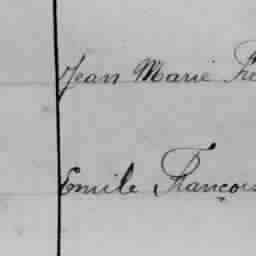 Jean Marie
Emile François